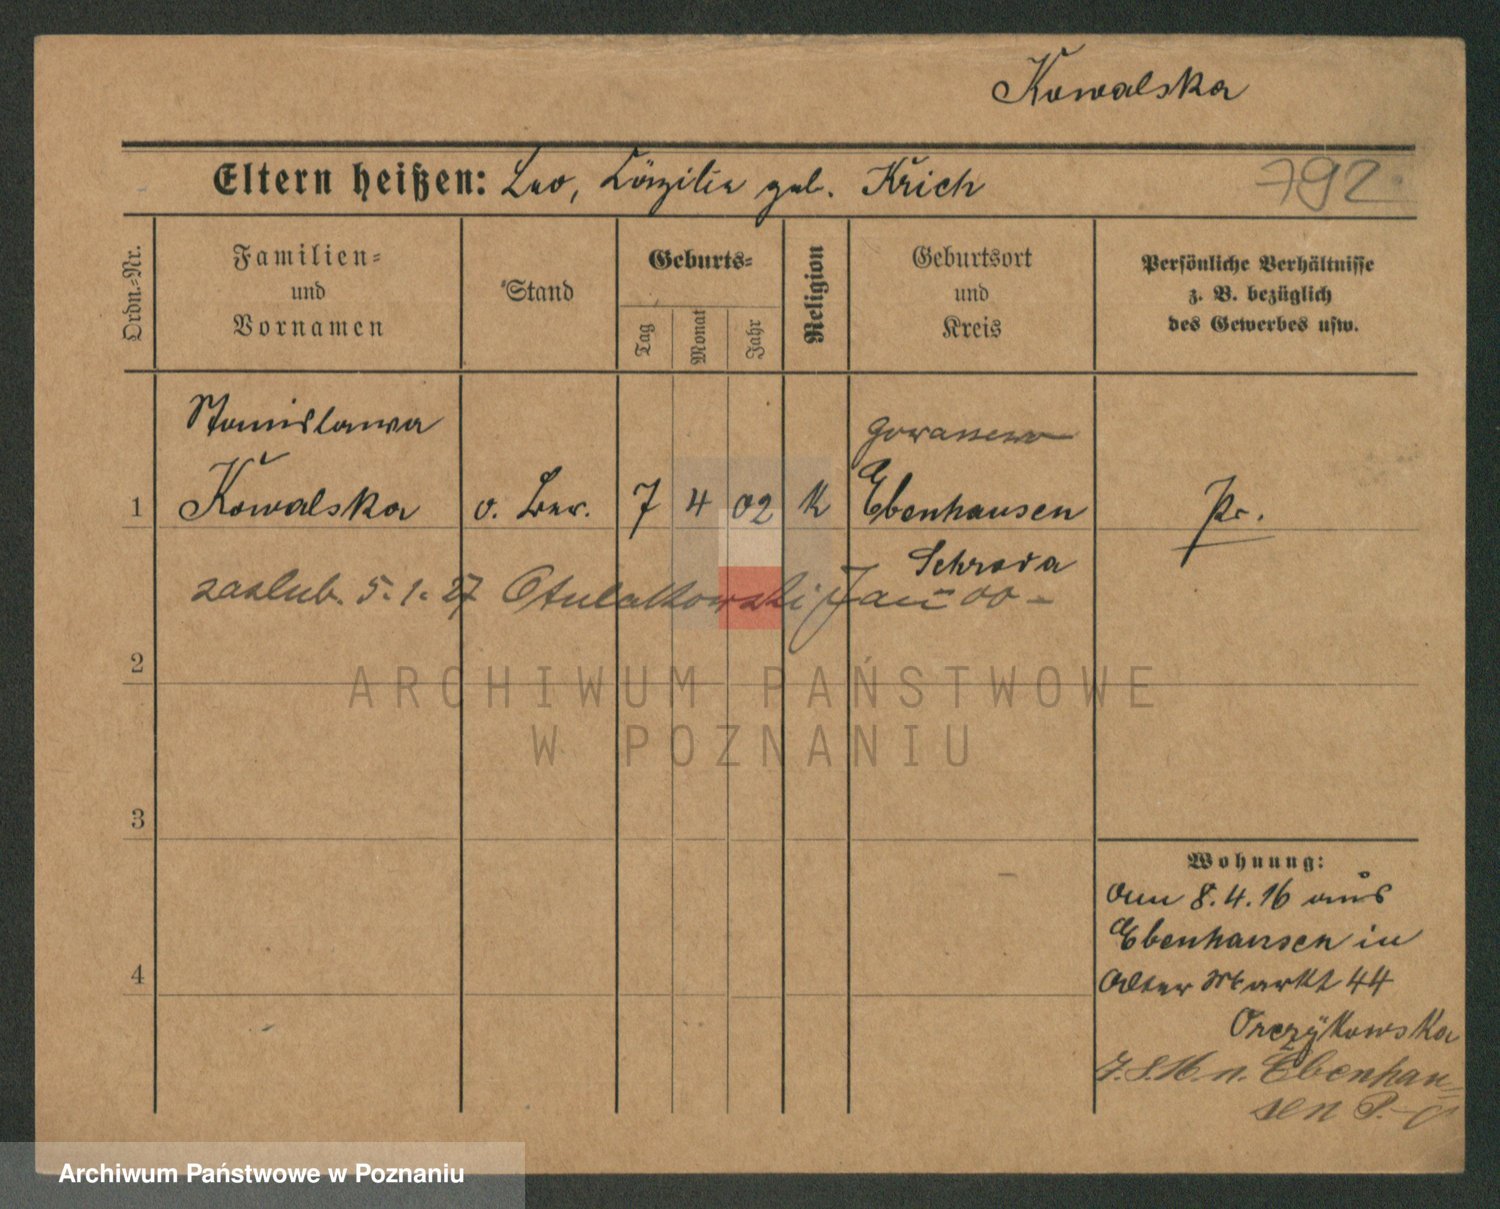 Kowalska
Eltern heißen: Leo, Cäzilie geb. Krich
792
Ordn.-Nr.
Familien-
und
Vornamen
Stand
Geburts-
Tag
Monat
Jahr
Religion
Geburtsort
und
Kreis
Persönliche Verhältnisse
z. B. bezüglich
des Gewerbes usw.
Stanislawa
1 Kowalska o. Ber. 7 4 02 K Ebenhausen Pr.
Schroda
zaślub. 5.1.27 Otulakowski Jan 00
2
3
4
Wohnung:
Am 8.4.16 aus
Ebenhausen in
Alter Markt 44
Orczykowska
n. Ebenhau-
sen
ARCHIWUM PAŃSTWOWE
W POZNANIU
Archiwum Państwowe w Poznaniu